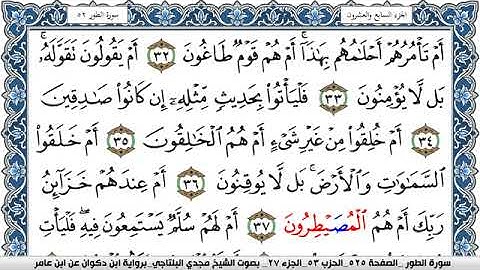 الجزء السابع والعشرون سورة الطور ٥٢
أَمۡ تَأۡمُرُهُمۡ أَحۡلَٰمُهُم بِهَٰذَآۚ أَمۡ هُمۡ قَوۡمٞ طَاغُونَ ٣٢ أَمۡ يَقُولُونَ تَقَوَّلَهُۥۚ
بَل لَّا يُؤۡمِنُونَ ٣٣ فَلۡيَأۡتُواْ بِحَدِيثٖ مِّثۡلِهِۦٓ إِن كَانُواْ صَٰدِقِينَ
٣٤ أَمۡ خُلِقُواْ مِنۡ غَيۡرِ شَيۡءٍ أَمۡ هُمُ ٱلۡخَٰلِقُونَ ٣٥ أَمۡ خَلَقُواْ
ٱلسَّمَٰوَٰتِ وَٱلۡأَرۡضَۚ بَل لَّا يُوقِنُونَ ٣٦ أَمۡ عِندَهُمۡ خَزَآئِنُ
رَبِّكَ أَمۡ هُمُ ٱلۡمُصَۜيۡطِرُونَ ٣٧ أَمۡ لَهُمۡ سُلَّمٞ يَسۡتَمِعُونَ فِيهِۖ فَلۡيَأۡتِ
سورة الطور _الصفحة ٥٢٥_ الحزب ٥٣_ الجزء ٢٧ _ بصوت الشيخ مجدي البلتاجي_ برواية ابن ذكوان عن ابن عامر